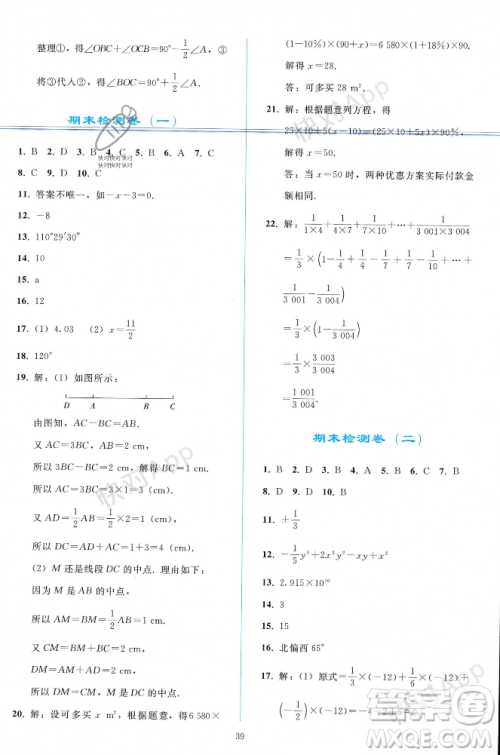 整理①，得∠OBC+∠OCB=90°-1/2∠A，③
将③代入②，得∠BOC=90°+1/2∠A.
期末检测卷（一）
1. B 2. D 3. D 4. C 5. B 6. A 7. C
8. C 9. D 10. C
11. 答案不唯一，如-x-3=0.
12. -8
13. 110°29′30″
14. 10
15. m
16. 12
17. (1) 4.03 (2) x=11/2
18. 120°
19. 解：(1) 如图所示：
D A B C
由图知，AC-BC=AB.
又 AC=3BC，AB=2 cm，
所以 3BC-BC=2 cm，得 BC=1 cm.
所以 AC=3BC=3×1=3 (cm).
又 DA=1/2AB=1/2×2=1 (cm)，
所以 DC=DA+AC=1+3=4 (cm).
(2) M 还是线段 DC 的中点. 理由如下：
因为 M 是 AB 的中点，
所以 AM=BM=1/2AB=1 cm.
又 CM=BM+BC=2 cm，
DM=AM+DA=2 cm，
所以 DM=CM，即 M 是 DC 的中点.
20. 解：设可多买 x m². 根据题意，得 6 580×
(1-10%)×(100+x)=6 580×100×
解得 x=28.
答：可多买 28 m².
21. 解：根据题意列方程，得
解得 x=50.
答：当 x=50 时，两种优惠方案实际付款金
额相同.
22. 解：1/(1×4)+1/(4×7)+1/(7×10)+…+1/(3 001×3 004)
=1/3×(1-1/4+1/4-1/7+1/7-1/10+…+
1/3 001-1/3 004)
=1/3×3 003/3 004
=1 001/3 004.
期末检测卷（二）
1. B 2. D 3. B 4. A 5. B 6. C 7. B
8. D 9. D 10. B
11. ±1/3
12. -1/5y⁴+2x³y²-x²y
13. 2.915×10¹⁰
14. 3
15. 15
16. 北偏西 65°
17. 解：(1) 原式=1/3×(-12)+1/4×(-12)+
39
快对App